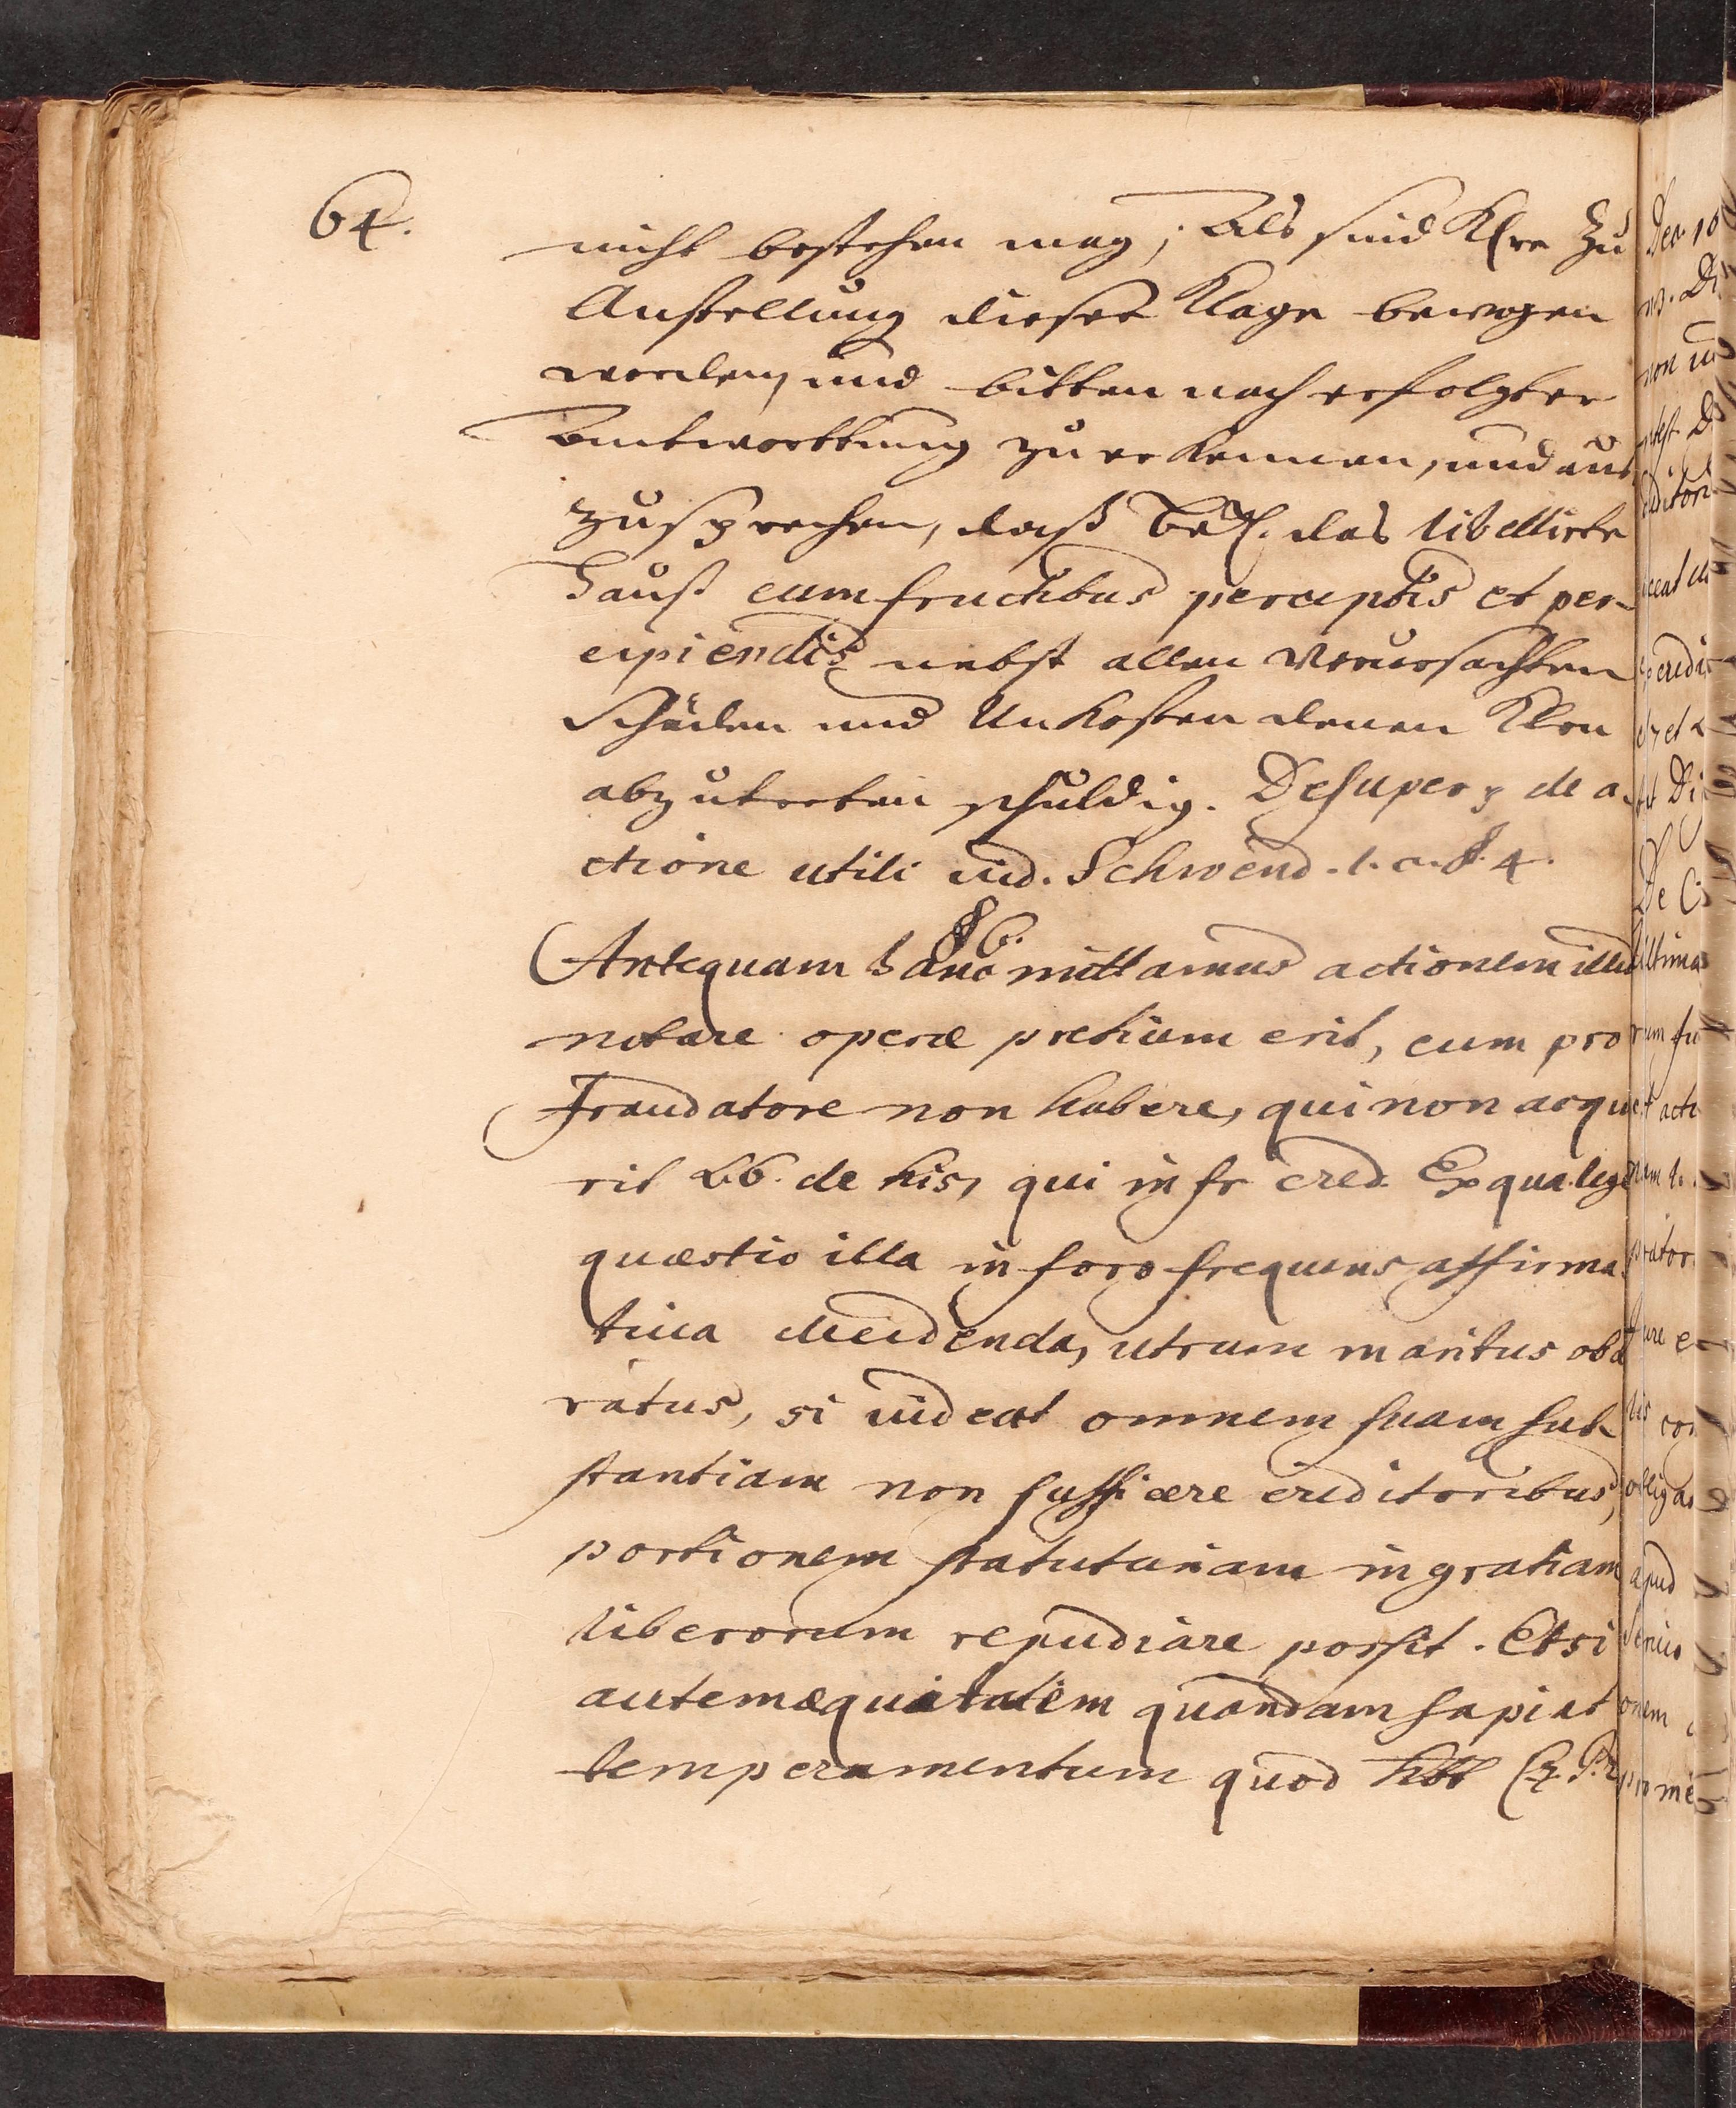 64.
nicht bestehen mag; Als sind Klre zu
Anstellung dieser Klage bewogen
worden, und bitten nach erfolgter
Antworttung zu erkennen, und aus
zusprechen, daß Bekl. das libellirte
Hauß cum fructibus perceptis et per-
cipiendis nebst allen verursachten
Schäden und Unkosten denen Klrn
abzutreten schuldig. Desuper de a-
ctione utili vid. Schwend. l. c. § 4.
§ 6.
Antequam hanc mittamus actionem illud
notare operæ pretium erit, eum pro
Fraudatore non habere, qui non acqui
rit l. 6. de his, qui in fr cred. Ex qua lege
quæstio illa in foro frequens affirma
tiva decidenda, utrum maritus obæ
ratus, si videat omnem suam sub-
stantiam non sufficere creditoribus,
portionem statutariam in gratiam
liberorum repudiare possit. Etsi
autem æquitatem quandam sapiat
temperamentum quod